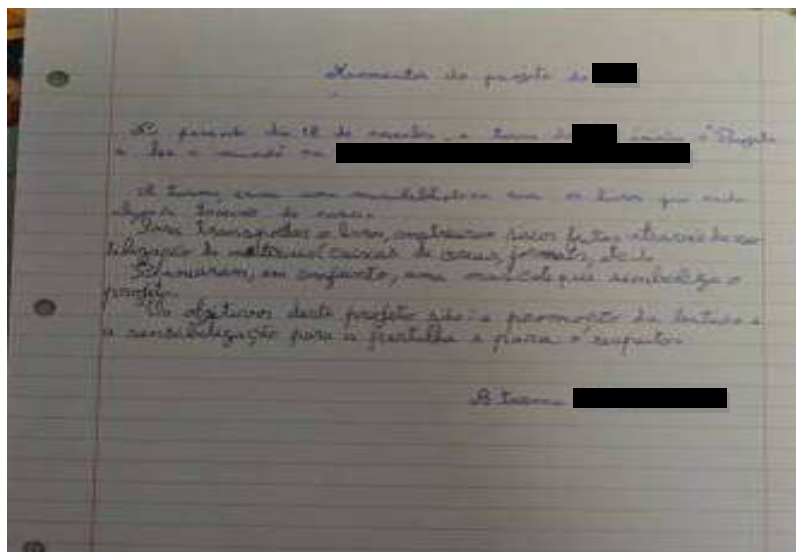 do projeto do
No passado dia 18 de novembro, a turma do iniciou o "Projeto
a ler o mundo" na
A turma criou uma minibiblioteca com os livros que cada
aluno trouxe de casa.
Para transportar o livro, construíram sacos feitos através da reu-
tilização de materiais (caixas de cereais, jornais, etc.).
Criaram, em conjunto, uma mascote que simboliza o
projeto.
Os objetivos deste projeto são: a promoção da leitura e
a sensibilização para a partilha e para o respeito.
A turma